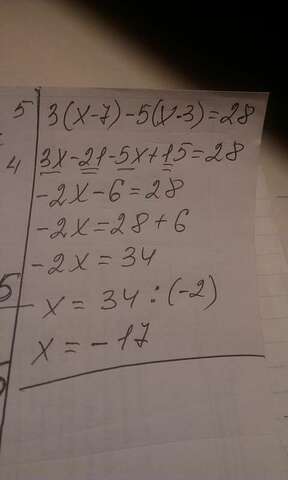 5 3(x-7)-5(x-3)=28
4 3x-21-5x+15=28
-2x-6=28
-2x=28+6
-2x=34
5 x=34:(-2)
x=-17